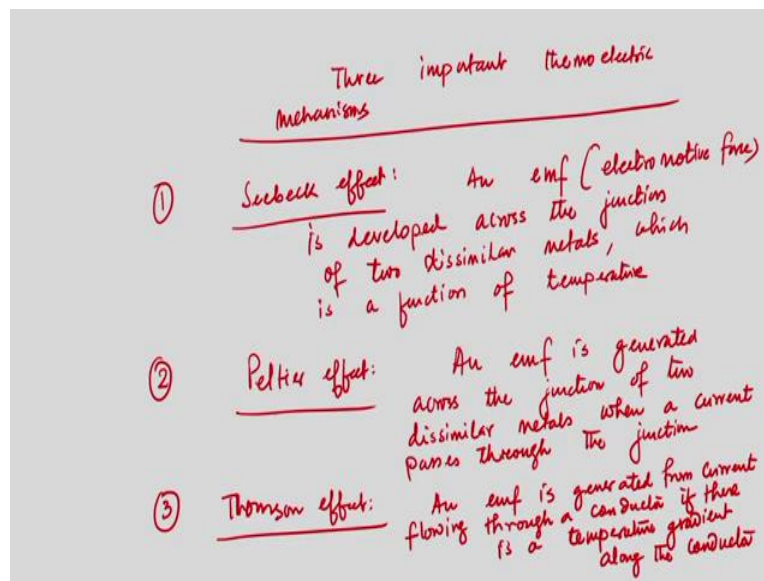 Three important thermoelectric
mehanisms
① Seebeck effect: An emf (electromotive force)
is developed across the junction
of two dissimilar metals, which
is a function of temperature
② Peltier effect: An emf is generated
across the junction of two
dissimilar metals when a current
passes through the junction
③ Thomson effect: An emf is generated from current
flowing through a conductor if there
is a temperature gradient
along the conductor